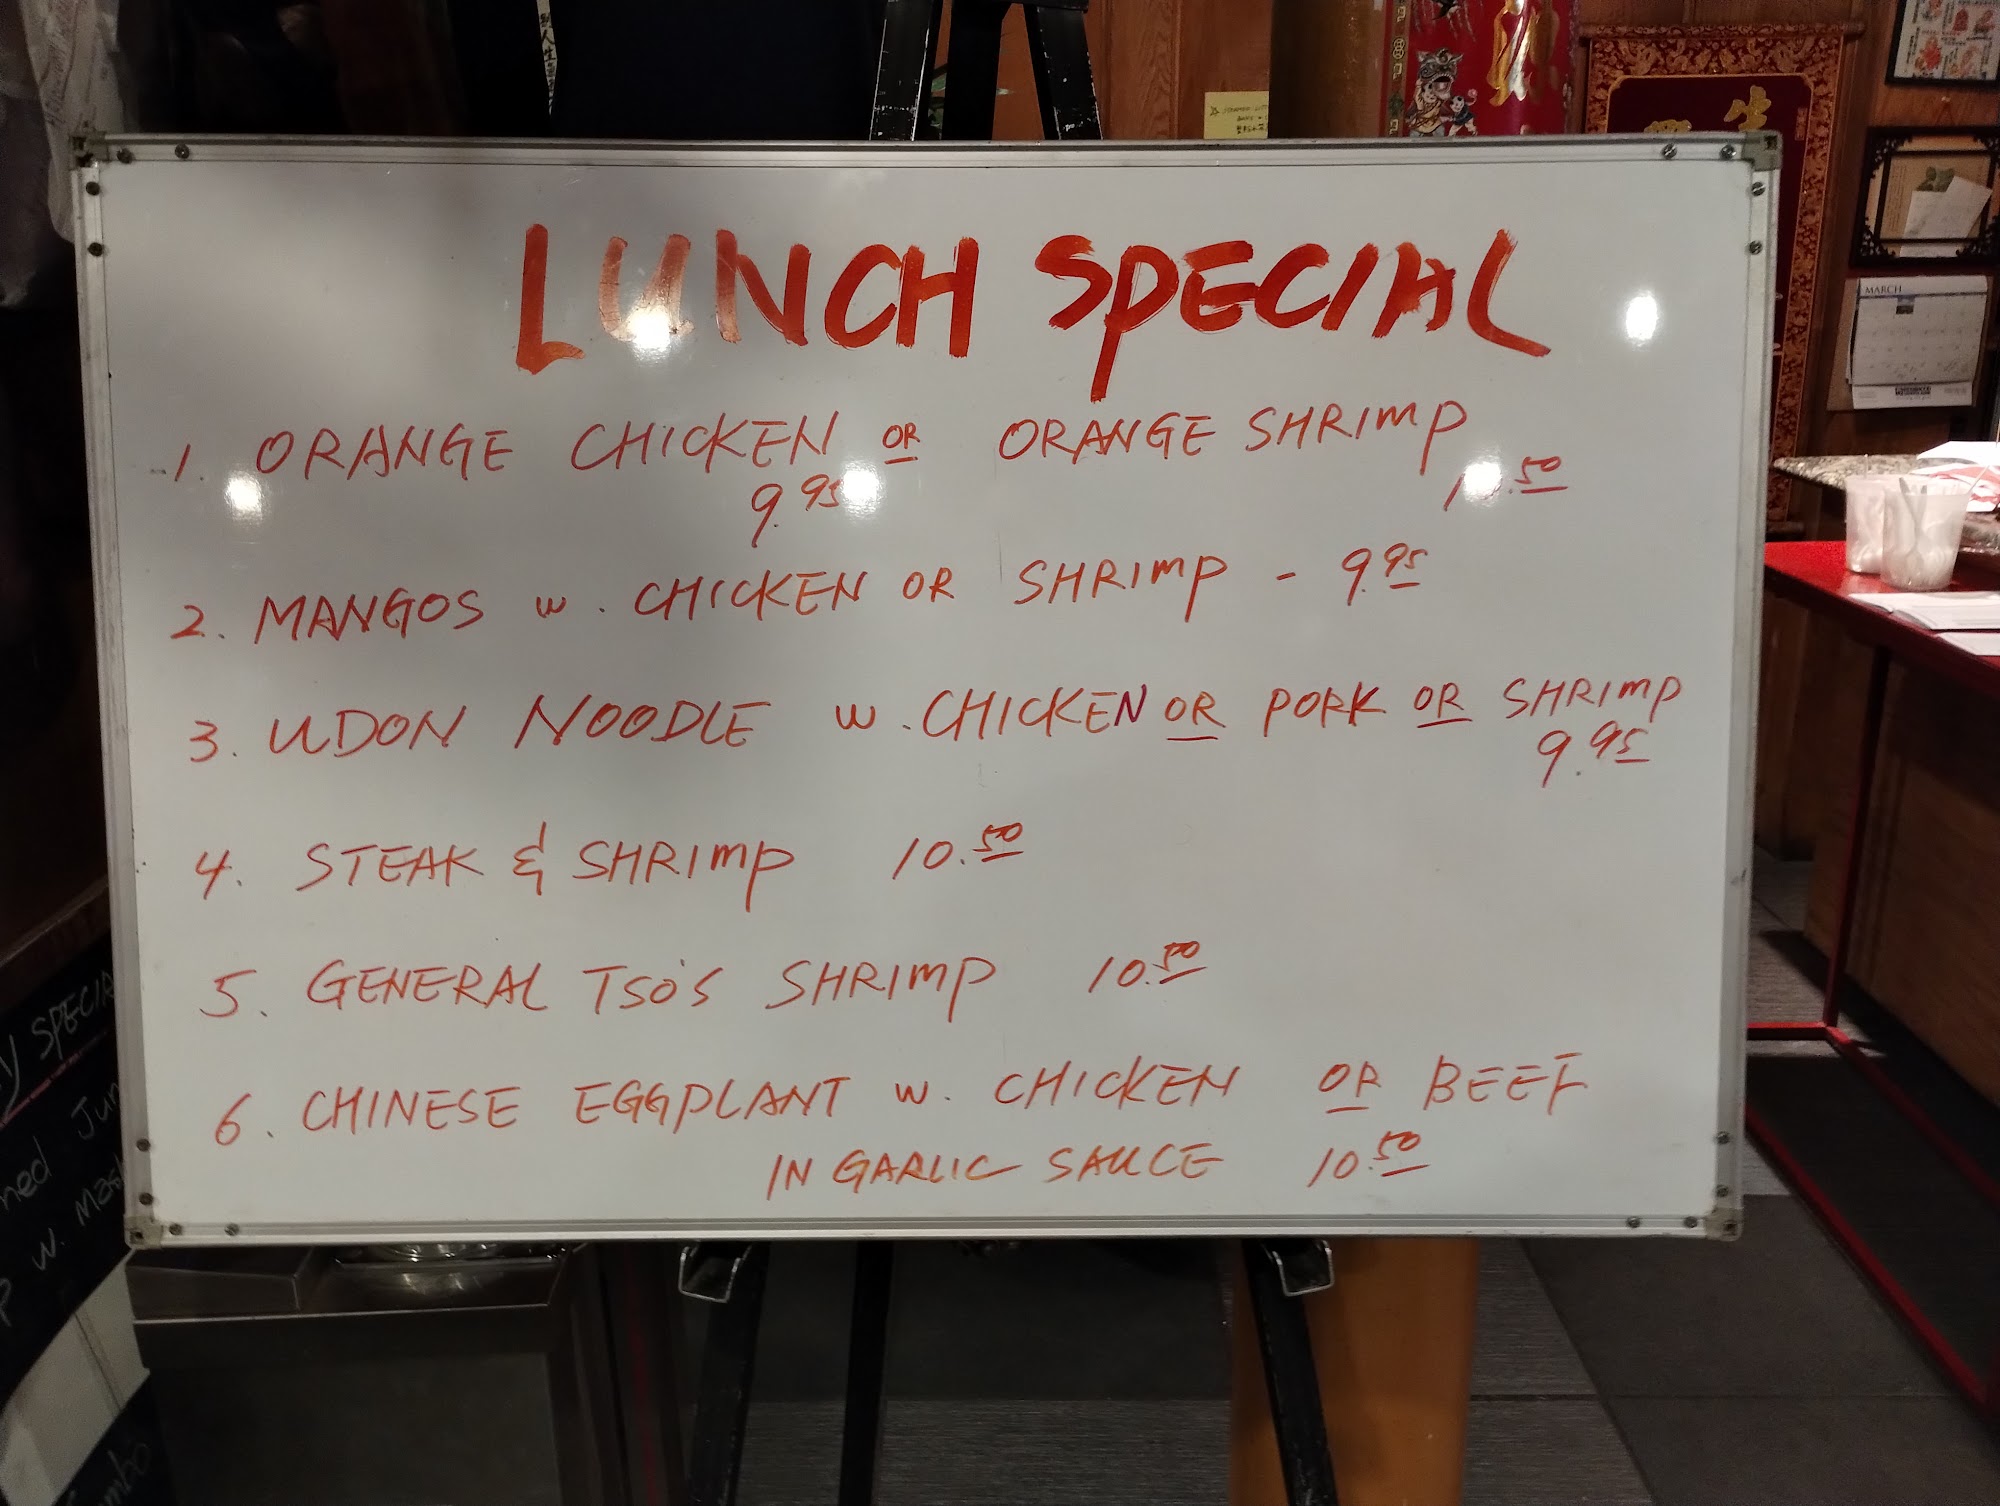 LUNCH SPECIAL
1. ORANGE CHICKEN OR ORANGE SHRIMP
9.95 .50
2. MANGOS w. CHICKEN OR SHRIMP - 9.95
3. UDON NOODLE w. CHICKEN OR PORK OR SHRIMP
9.95
4. STEAK & SHRIMP 10.50
5. GENERAL TSO'S SHRIMP 10.50
6. CHINESE EGGPLANT w. CHICKEN OR BEEF
IN GARLIC SAUCE 10.50
MARCH
生
SPECIA
w.